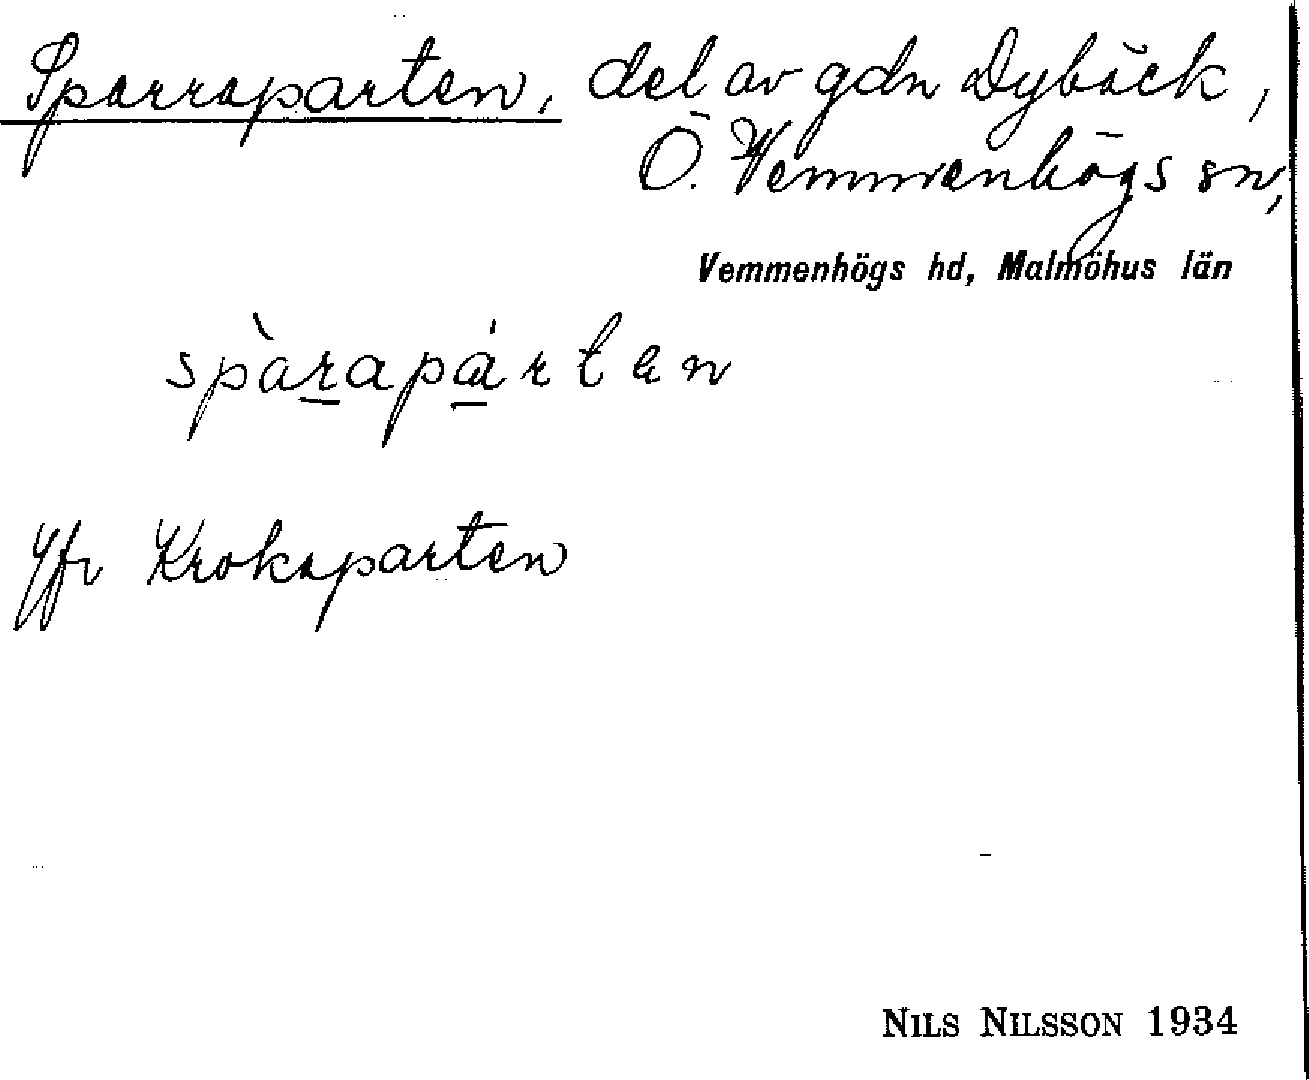 Sparraparten, del av gdn Dybäck,
Ö. Vemmenhögs sn,
Vemmenhögs hd, Malmöhus län
spàrapártan
Jfr Krokaparten
NILS NILSSON 1934